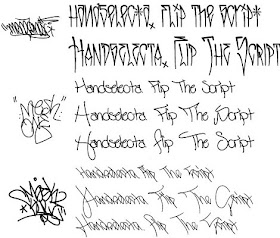 Handselecta, Flip The Script
Handselecta, Flip The Script
Handselecta Flip The Script
Handselecta Flip The Script
Handselecta Flip The Script
Handselecta Flip The Script
Handselecta Flip The Script
Handselecta Flip The Script